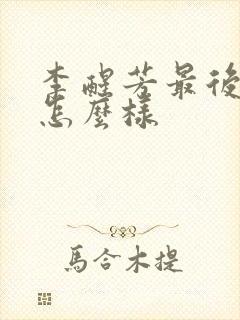 李醒芳最後
怎麼樣
馬合木提